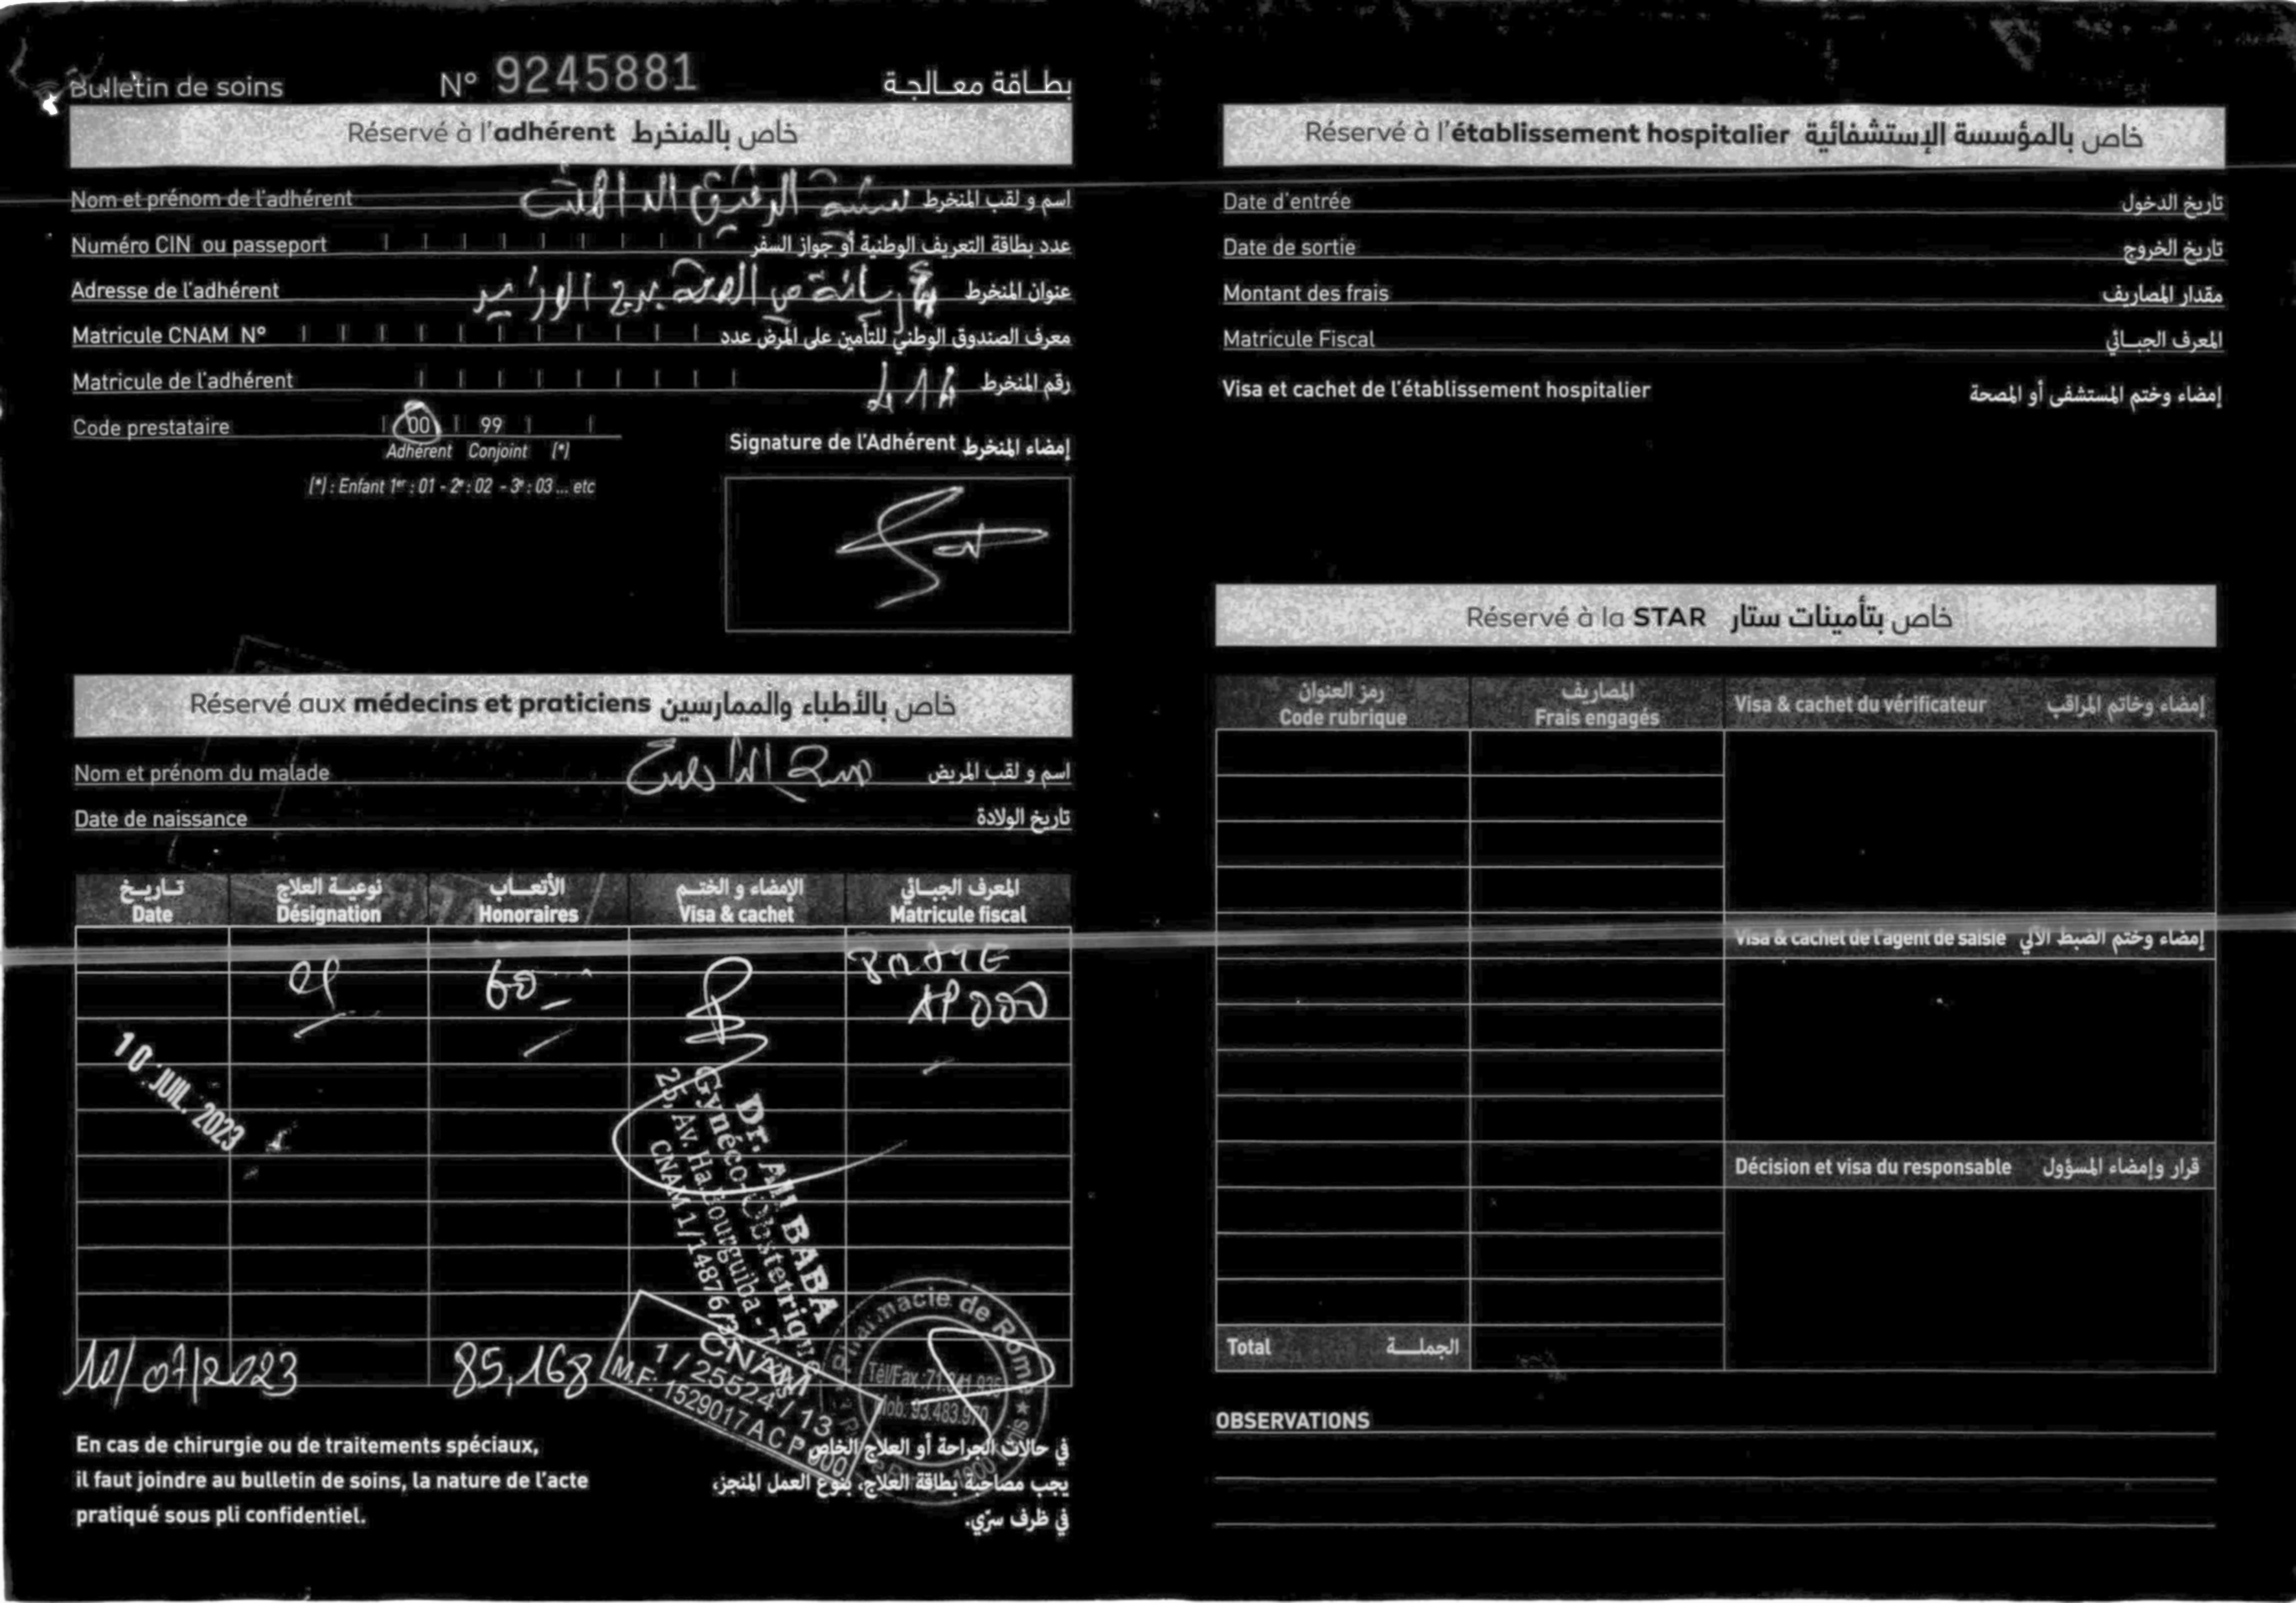 Bulletin de soins N° 9245881 بطاقة معالجة
Réservé à l'adhérent خاص بالمنخرط
Nom et prénom de l'adhérent اسم و لقب المنخرط
Numéro CIN ou passeport عدد بطاقة التعريف الوطنية أو جواز السفر
Adresse de l'adhérent عنوان المنخرط
Matricule CNAM N° معرف الصندوق الوطني للتأمين على المرض عدد
Matricule de l'adhérent رقم المنخرط
Code prestataire 00 99
Adhérent Conjoint (*)
(*) : Enfant 1er : 01 - 2e : 02 - 3e : 03 ... etc
Signature de l'Adhérent إمضاء المنخرط
Réservé aux médecins et praticiens خاص بالأطباء والممارسين
Nom et prénom du malade اسم و لقب المريض
Date de naissance تاريخ الولادة
تاريخ نوعية العلاج الأتعاب الإمضاء و الختم المعرف الجبائي
Date Désignation Honoraires Visa & cachet Matricule fiscal
60
AP000
10 JUIL. 2023
Dr. Ali BABA
Gynéco-Obstetrique
25, Av. Ha. Bourguiba -
CNAM 1/14876/
10/07/2023 85,168
CNAM
1/25524/13
M.F: 1529017ACP000
Pharmacie de Rome
Tél/Fax.:71.341.935
Mob. 93.483.970
En cas de chirurgie ou de traitements spéciaux,
il faut joindre au bulletin de soins, la nature de l'acte
pratiqué sous pli confidentiel.
في حالات الجراحة أو العلاج الخاص
يجب مصاحبة بطاقة العلاج، بنوع العمل المنجز،
في ظرف سرّي.
Réservé à l'établissement hospitalier خاص بالمؤسسة الإستشفائية
Date d'entrée تاريخ الدخول
Date de sortie تاريخ الخروج
Montant des frais مقدار المصاريف
Matricule Fiscal المعرف الجبائي
Visa et cachet de l'établissement hospitalier إمضاء وختم المستشفى أو المصحة
Réservé à la STAR خاص بتأمينات ستار
رمز العنوان المصاريف
Code rubrique Frais engagés Visa & cachet du vérificateur إمضاء وخاتم المراقب
Visa & cachet de l'agent de saisie إمضاء وختم الضبط الآلي
Décision et visa du responsable قرار وإمضاء المسؤول
Total الجملة
OBSERVATIONS